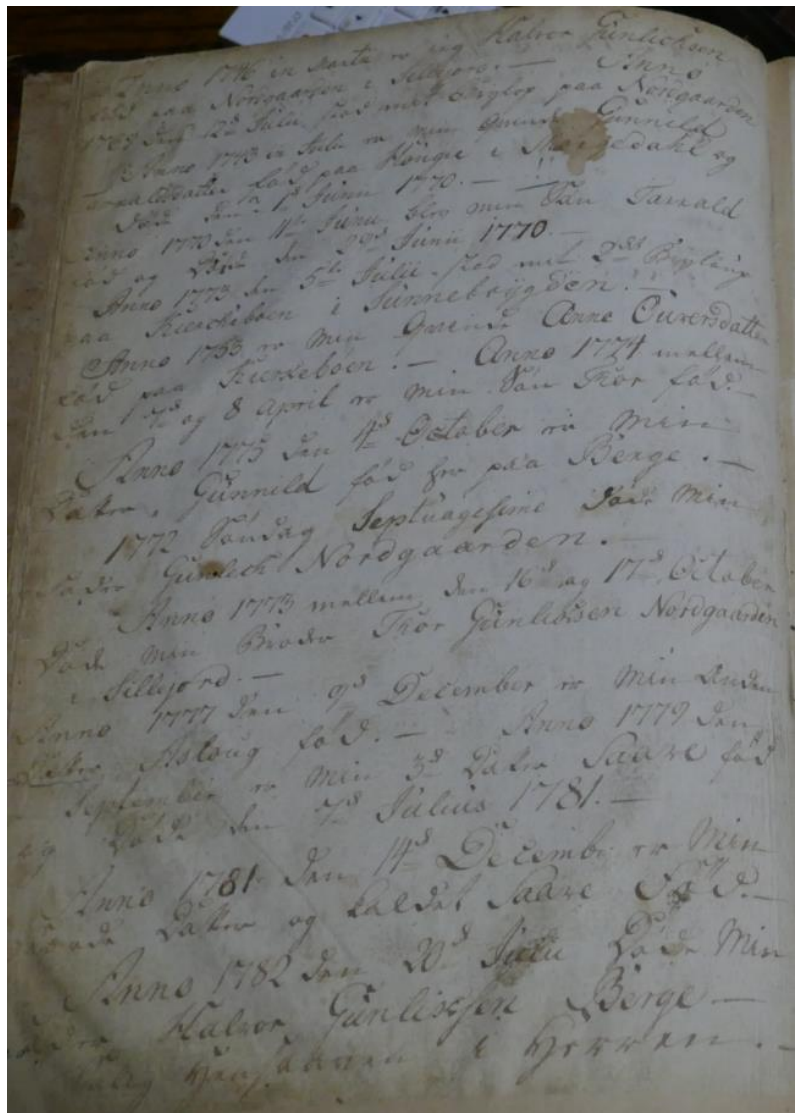 Anno 1746 in Martii er jeg Halvor Gunlichsen
fød paa Nordgaarden i Sillejord. — Anno
1769 den 12d Julii stod mit Bryllop paa Nordgaarden
Anno 1743 in Julii er min Qvinde Gunnild
fød paa Houge i Morgedahl og
Døde den 1d Junii 1770. —
Anno 1770 den 4de Junii blev min Søn Tarkald
fød og Døde den 29d Junii 1770. —
Anno 1773 den 5te Julii stod mit 2det Bryllup
paa Kierckebøen i Sunnebøygden. —
Anno 1753 er min Qvinde Anne Ouversdatter
fød paa Kierkebøen. — Anno 1774 mellem
den 7d og 8 April er min Søn Thor fød. —
Anno 1775 den 4d October er min
Datter, Gunnild fød her paa Berge. —
1772 Søndag Septuagesime Døde Min
Fader Gunlech Nordgaarden. —
Anno 1773 mellem den 16d og 17d October
Døde min Broder Thor Gunlichsen Nordgaarden
i Sillejord. —
Anno 1777 den 9d December er Min Anden
Datter Asloug fød. — Anno 1779 den
September er Min 3d Datter Saave fød
og Døde den 7d Julius 1781. —
Anno 1781 den 14d Decembr er Min
Datter og kaldet Saave Fød. —
Anno 1782 den 20d Julii Døde Min
Halvor Gunlichsen Berge —
i Herren. —